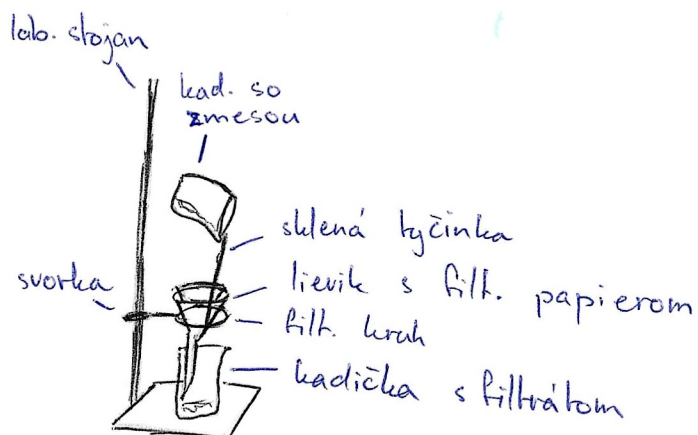 lab. stojan
kad. so
zmesou
sklená tyčinka
lievik s filt. papierom
svorka
filt. kruh
kadička s filtrátom